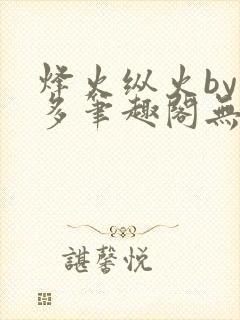 烽火纵火by
多筆趣阁無
諶馨悦